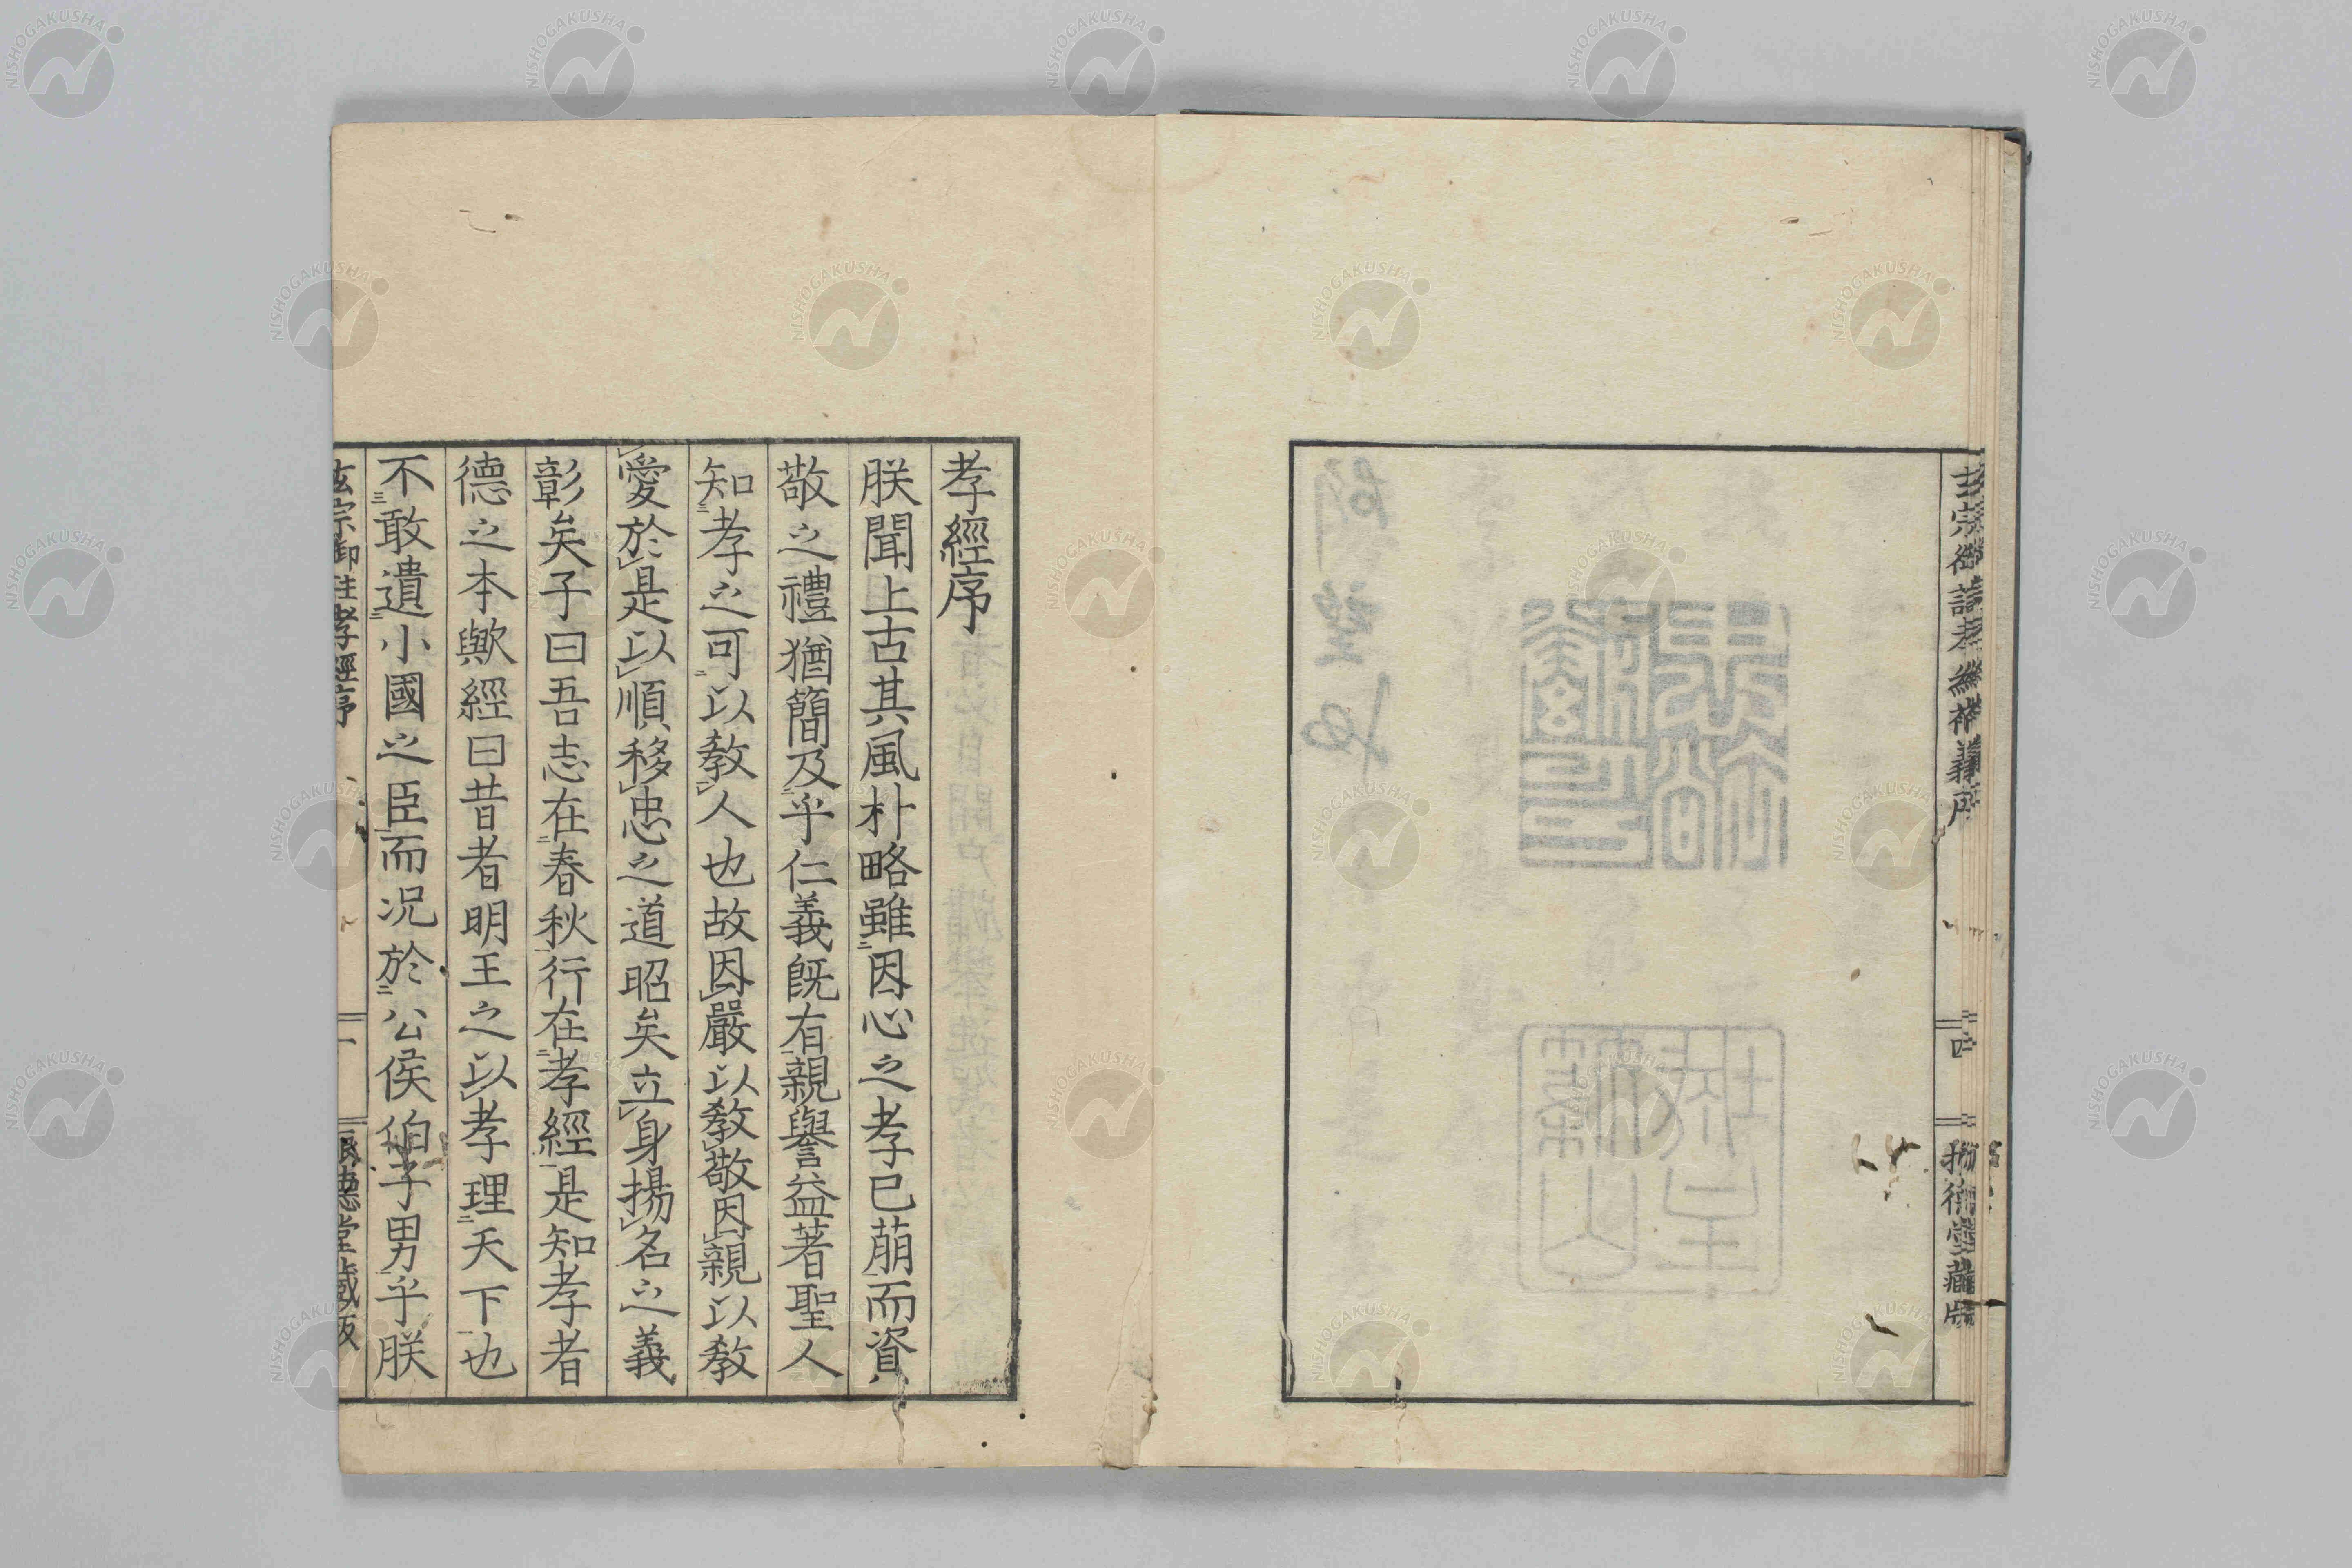 孝經序
朕聞上古其風朴略雖因心之孝已萠而資
敬之禮猶簡及乎仁義既有親譽益著聖人
知孝之可以教人也故因嚴以教敬因親以教
愛於是以順移忠之道昭矣立身揚名之義
彰矣子曰吾志在春秋行在孝經是知孝者
德之本歟經曰昔者明王之以孝理天下也
不敢遺小國之臣而況於公侯伯子男乎朕
玄宗御註孝經序
一
德堂藏版
四
NISHOGAKUSHA